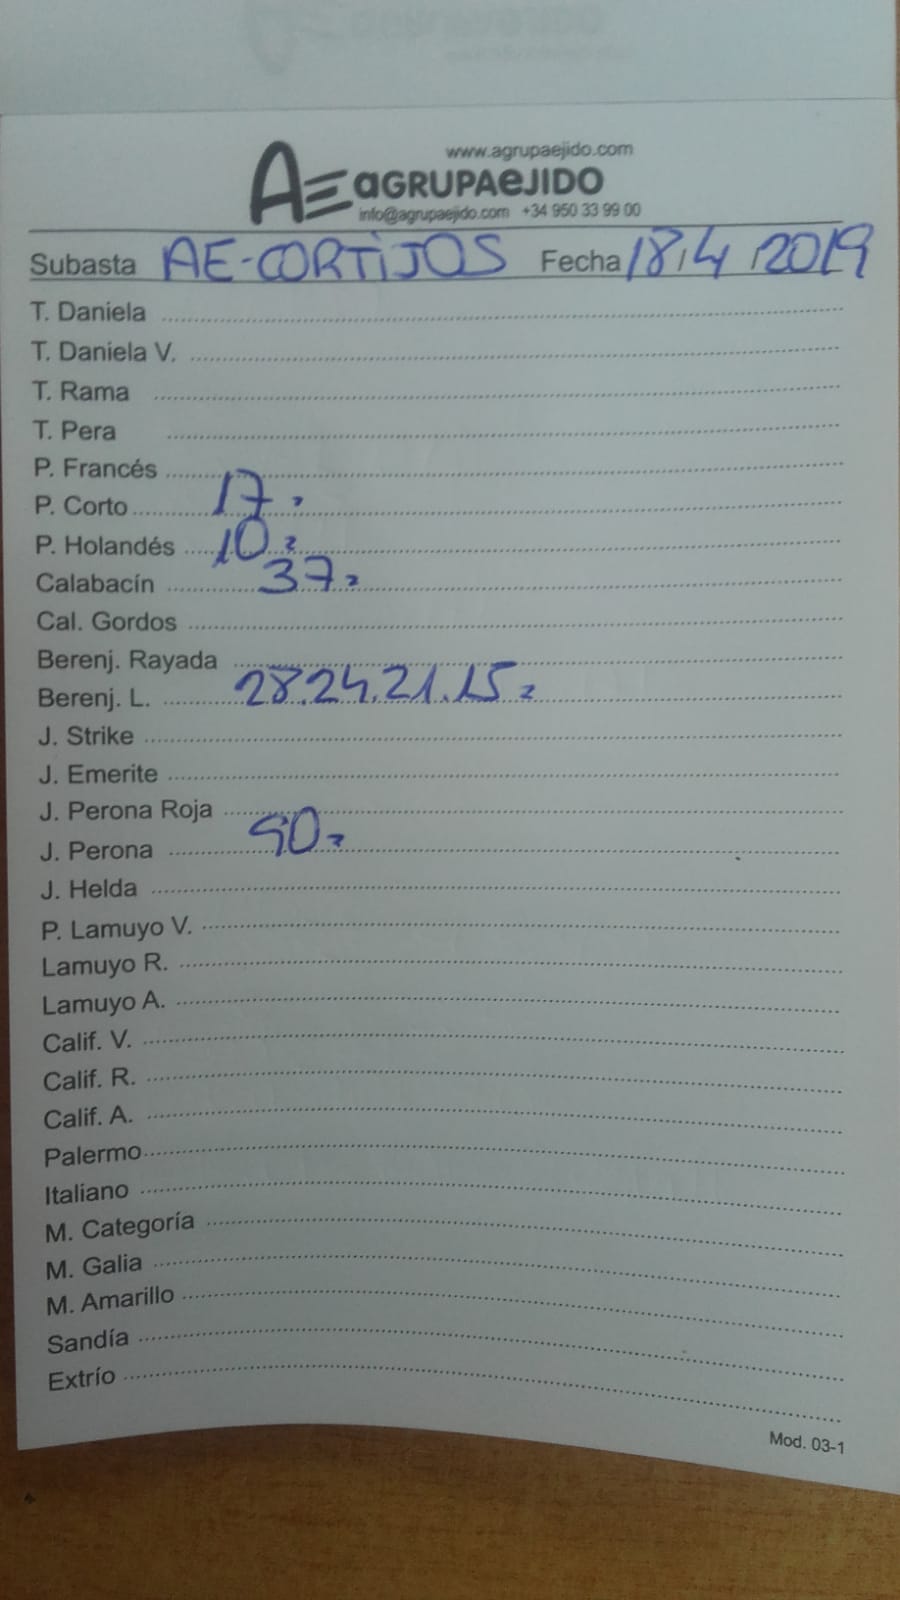 www.agrupaejido.com
AE aGRUPAeJIDO
info@agrupaejido.com +34 950 33 99 00
Subasta AE-CORTIJOS Fecha 18/4/2019
T. Daniela
T. Daniela V.
T. Rama
T. Pera
P. Francés
P. Corto 17
P. Holandés 10
Calabacín 37
Cal. Gordos
Berenj. Rayada
Berenj. L. 28.24.21.15
J. Strike
J. Emerite
J. Perona Roja
J. Perona 90
J. Helda
P. Lamuyo V.
Lamuyo R.
Lamuyo A.
Calif. V.
Calif. R.
Calif. A.
Palermo
Italiano
M. Categoría
M. Galia
M. Amarillo
Sandía
Extrío
Mod. 03-1